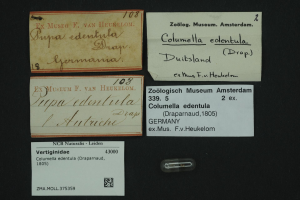 108
Ex Museo F. van Heukelom.
Pupa edentula
Drap.
Germania.
2
Zoölog. Museum Amsterdam.
Columella edentula
(Drap)
Duitsland
ex Mus F. v Heukelom
108
Ex Museo F. van Heukelom.
Pupa edentula
Drap
Autriche
Zoölogisch Museum Amsterdam
339. 5 2 ex.
Columella edentula
(Draparnaud,1805)
GERMANY
ex.Mus. F.v.Heukelom
NCB Naturalis - Leiden
Vertiginidae 43000
Columella edentula (Draparnaud,
1805)
ZMA.MOLL.375359